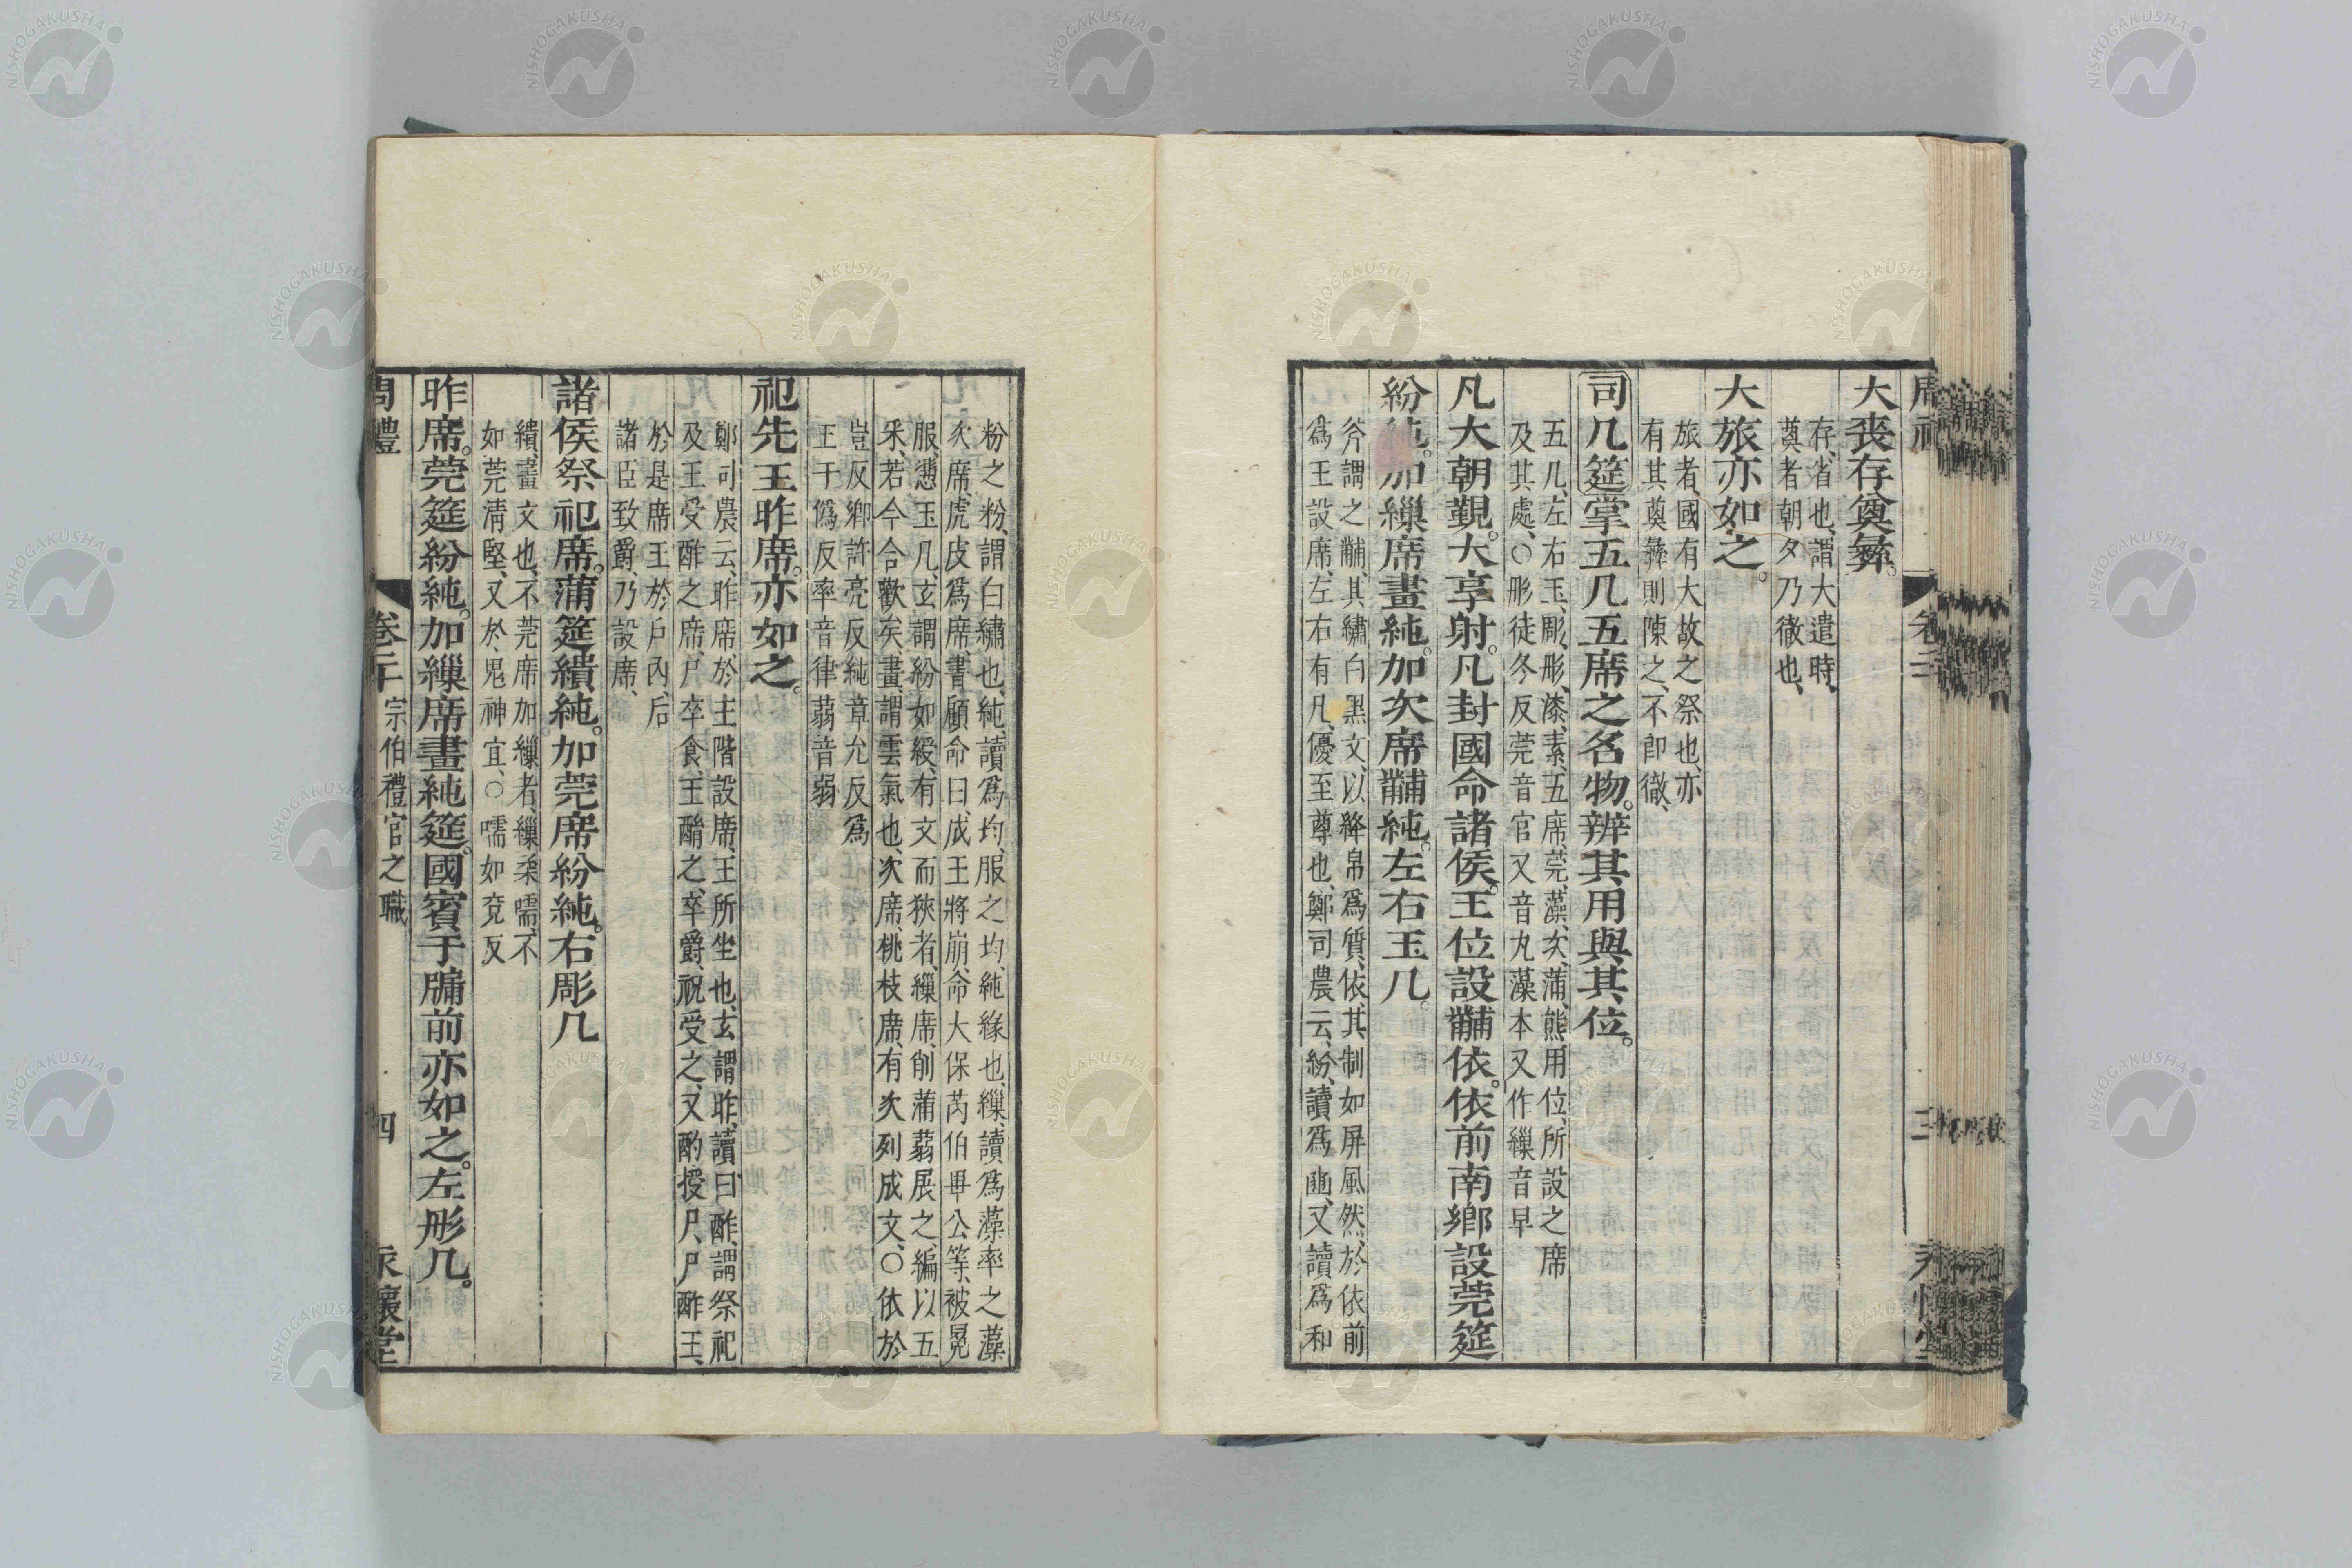 大喪存奠彝。
存、省也、謂大遣時、
奠者朝夕乃徹也、
大旅亦如之。
旅者、國有大故之祭也、亦
有其奠彝則陳之、不卽徹、
司几筵掌五几五席之名物。辨其用與其位。
五几、左右玉、彫、彤、漆、素、五席、莞、藻、次、蒲、熊、用位、所設之席
及其處、○彤徒冬反莞音官又音丸藻本又作繅音早
凡大朝覲。大享射。凡封國命諸侯。王位設黼依。依前南鄉設莞筵
紛純。加繅席畫純。加次席黼純。左右玉几。
斧謂之黼、其繡白黑文、以絳帛爲質、依、其制如屏風然、於依前
爲王設席、左右有几、優至尊也、鄭司農云、紛、讀爲豳、又讀爲和
粉之粉、謂白繡也、純、讀爲均、服之均、純緣也、繅、讀爲藻率之藻
次席、虎皮爲席、書顧命曰、成王將崩、命大保芮伯畢公等、被冕
服、憑玉几、玄謂紛如綬、有文而狹者、繅席、削蒲蒻展之、編以五
采、若今合歡矣、畫、謂雲氣也、次席、桃枝席、有次列成文、○依於
豈反鄉許亮反純章允反爲
王于僞反率音律蒻音弱
祀先王昨席。亦如之。
鄭司農云、昨席、於主階設席、王所坐也、玄謂昨、讀曰酢、謂祭祀
及王受酢之席、尸卒食、王酳之、卒爵、祝受之、又酌授尸、尸酢王、
於是席王於戶內、后
諸臣致爵、乃設席、
諸侯祭祀席。蒲筵繢純。加莞席紛純。右彫几
繢、畫文也、不莞席加繅者、繅柔嚅、不
如莞淸堅、又於鬼神宜、○嚅如兗反
昨席。莞筵紛純。加繅席畫純筵。國賓于牖前亦如之。左彤几。
周禮 卷二十 宗伯禮官之職 四 永懷堂